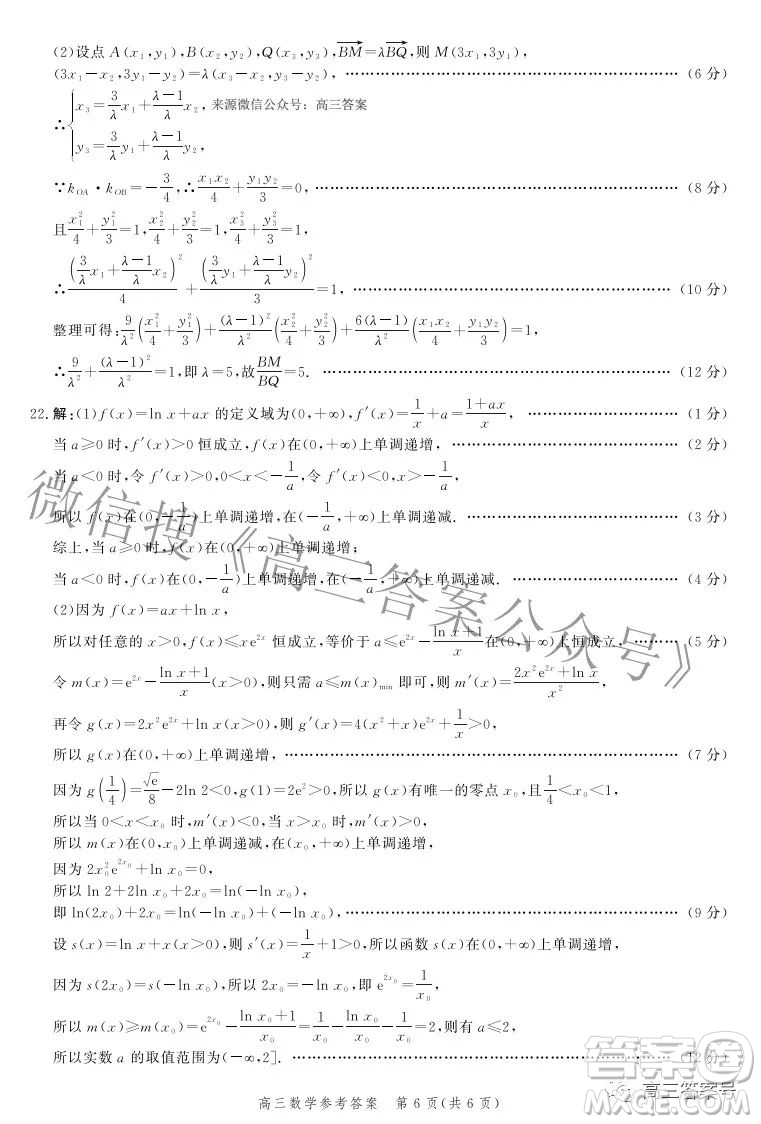 (2)设点 A(x₁,y₁),B(x₂,y₂),Q(x₃,y₃),\overrightarrow{BM}=λ\overrightarrow{BQ},则 M(3x₁,3y₁,
(3x₁-x₂,3y₁-y₂)=λ(x₃-x₂,y₃-y₂), ……………(6 分)
∴{x₃=\frac{3}{λ}x₁+\frac{λ-1}{λ}x₂, 来源微信公众号:高三答案
y₃=\frac{3}{λ}y₁+\frac{λ-1}{λ}y₂,
∵k_{OA}·k_{OB}=-\frac{3}{4},∴\frac{x₁x₂}{4}+\frac{y₁y₂}{3}=0, ……………(8 分)
且\frac{x₁²}{4}+\frac{y₁²}{3}=1,\frac{x₂²}{4}+\frac{y₂²}{3}=1,\frac{x₃²}{4}+\frac{y₃²}{3}=1,
∴\frac{(\frac{3}{λ}x₁+\frac{λ-1}{λ}x₂)²}{4}+\frac{(\frac{3}{λ}y₁+\frac{λ-1}{λ}y₂)²}{3}=1, ……………(10 分)
整理可得:\frac{9}{λ²}(\frac{x₁²}{4}+\frac{y₁²}{3})+\frac{(λ-1)²}{λ²}(\frac{x₂²}{4}+\frac{y₂²}{3})+\frac{6(λ-1)}{λ²}(\frac{x₁x₂}{4}+\frac{y₁y₂}{3})=1,
∴\frac{9}{λ²}+\frac{(λ-1)²}{λ²}=1,即 λ=5,故\frac{BM}{BQ}=5. ……………(12 分)
22.解:(1)f(x)=ln x+ax 的定义域为(0,+∞),f′(x)=\frac{1}{x}+a=\frac{1+ax}{x}, ……………(1 分)
当 a≥0 时,f′(x)>0 恒成立,f(x)在(0,+∞)上单调递增, ……………(2 分)
当 a<0 时,令 f′(x)>0,0<x<-\frac{1}{a},令 f′(x)<0,x>-\frac{1}{a},
所以 f(x)在(0,-\frac{1}{a})上单调递增,在(-\frac{1}{a},+∞)上单调递减. ……………(3 分)
综上,当 a≥0 时,f(x)在(0,+∞)上单调递增;
当 a<0 时,f(x)在(0,-\frac{1}{a})上单调递增,在(-\frac{1}{a},+∞)上单调递减. ……………(4 分)
(2)因为 f(x)=ax+ln x,
所以对任意的 x>0,f(x)≤xe^{2x} 恒成立,等价于 a≤e^{2x}-\frac{ln x+1}{x}在(0,+∞)上恒成立. ………(5 分)
令 m(x)=e^{2x}-\frac{ln x+1}{x}(x>0),则只需 a≤m(x)_{min} 即可,则 m′(x)=\frac{2x²e^{2x}+ln x}{x²},
再令 g(x)=2x²e^{2x}+ln x(x>0),则 g′(x)=4(x²+x)e^{2x}+\frac{1}{x}>0,
所以 g(x)在(0,+∞)上单调递增, ……………(7 分)
因为 g(\frac{1}{4})=\frac{\sqrt{e}}{8}-2ln 2<0,g(1)=2e²>0,所以 g(x)有唯一的零点 x₀,且\frac{1}{4}<x₀<1,
所以当 0<x<x₀ 时,m′(x)<0,当 x>x₀ 时,m′(x)>0,
所以 m(x)在(0,x₀)上单调递减,在(x₀,+∞)上单调递增,
因为 2x₀²e^{2x₀}+ln x₀=0,
所以 ln 2+2ln x₀+2x₀=ln(-ln x₀),
即 ln(2x₀)+2x₀=ln(-ln x₀)+(-ln x₀), ……………(9 分)
设 s(x)=ln x+x(x>0),则 s′(x)=\frac{1}{x}+1>0,所以函数 s(x)在(0,+∞)上单调递增,
因为 s(2x₀)=s(-ln x₀),所以 2x₀=-ln x₀,即 e^{2x₀}=\frac{1}{x₀},
所以 m(x)≥m(x₀)=e^{2x₀}-\frac{ln x₀+1}{x₀}=\frac{1}{x₀}-\frac{ln x₀}{x₀}-\frac{1}{x₀}=2,则有 a≤2,
所以实数 a 的取值范围为(-∞,2]. ……………(12 分)
高三数学参考答案 第 6 页(共 6 页)
微信搜《高三答案公众号》
答案圈
高三答案号